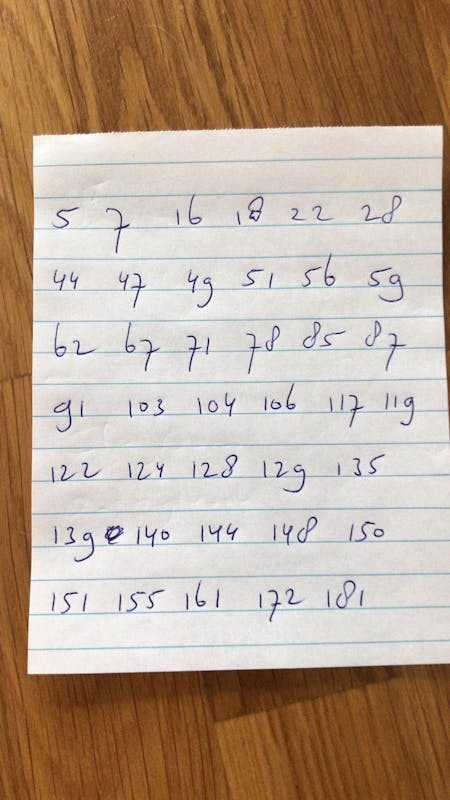 5 7 16 18 22 28
44 47 49 51 56 59
62 67 71 78 85 87
91 103 104 106 117 119
122 124 128 129 135
139 140 144 148 150
151 155 161 172 181